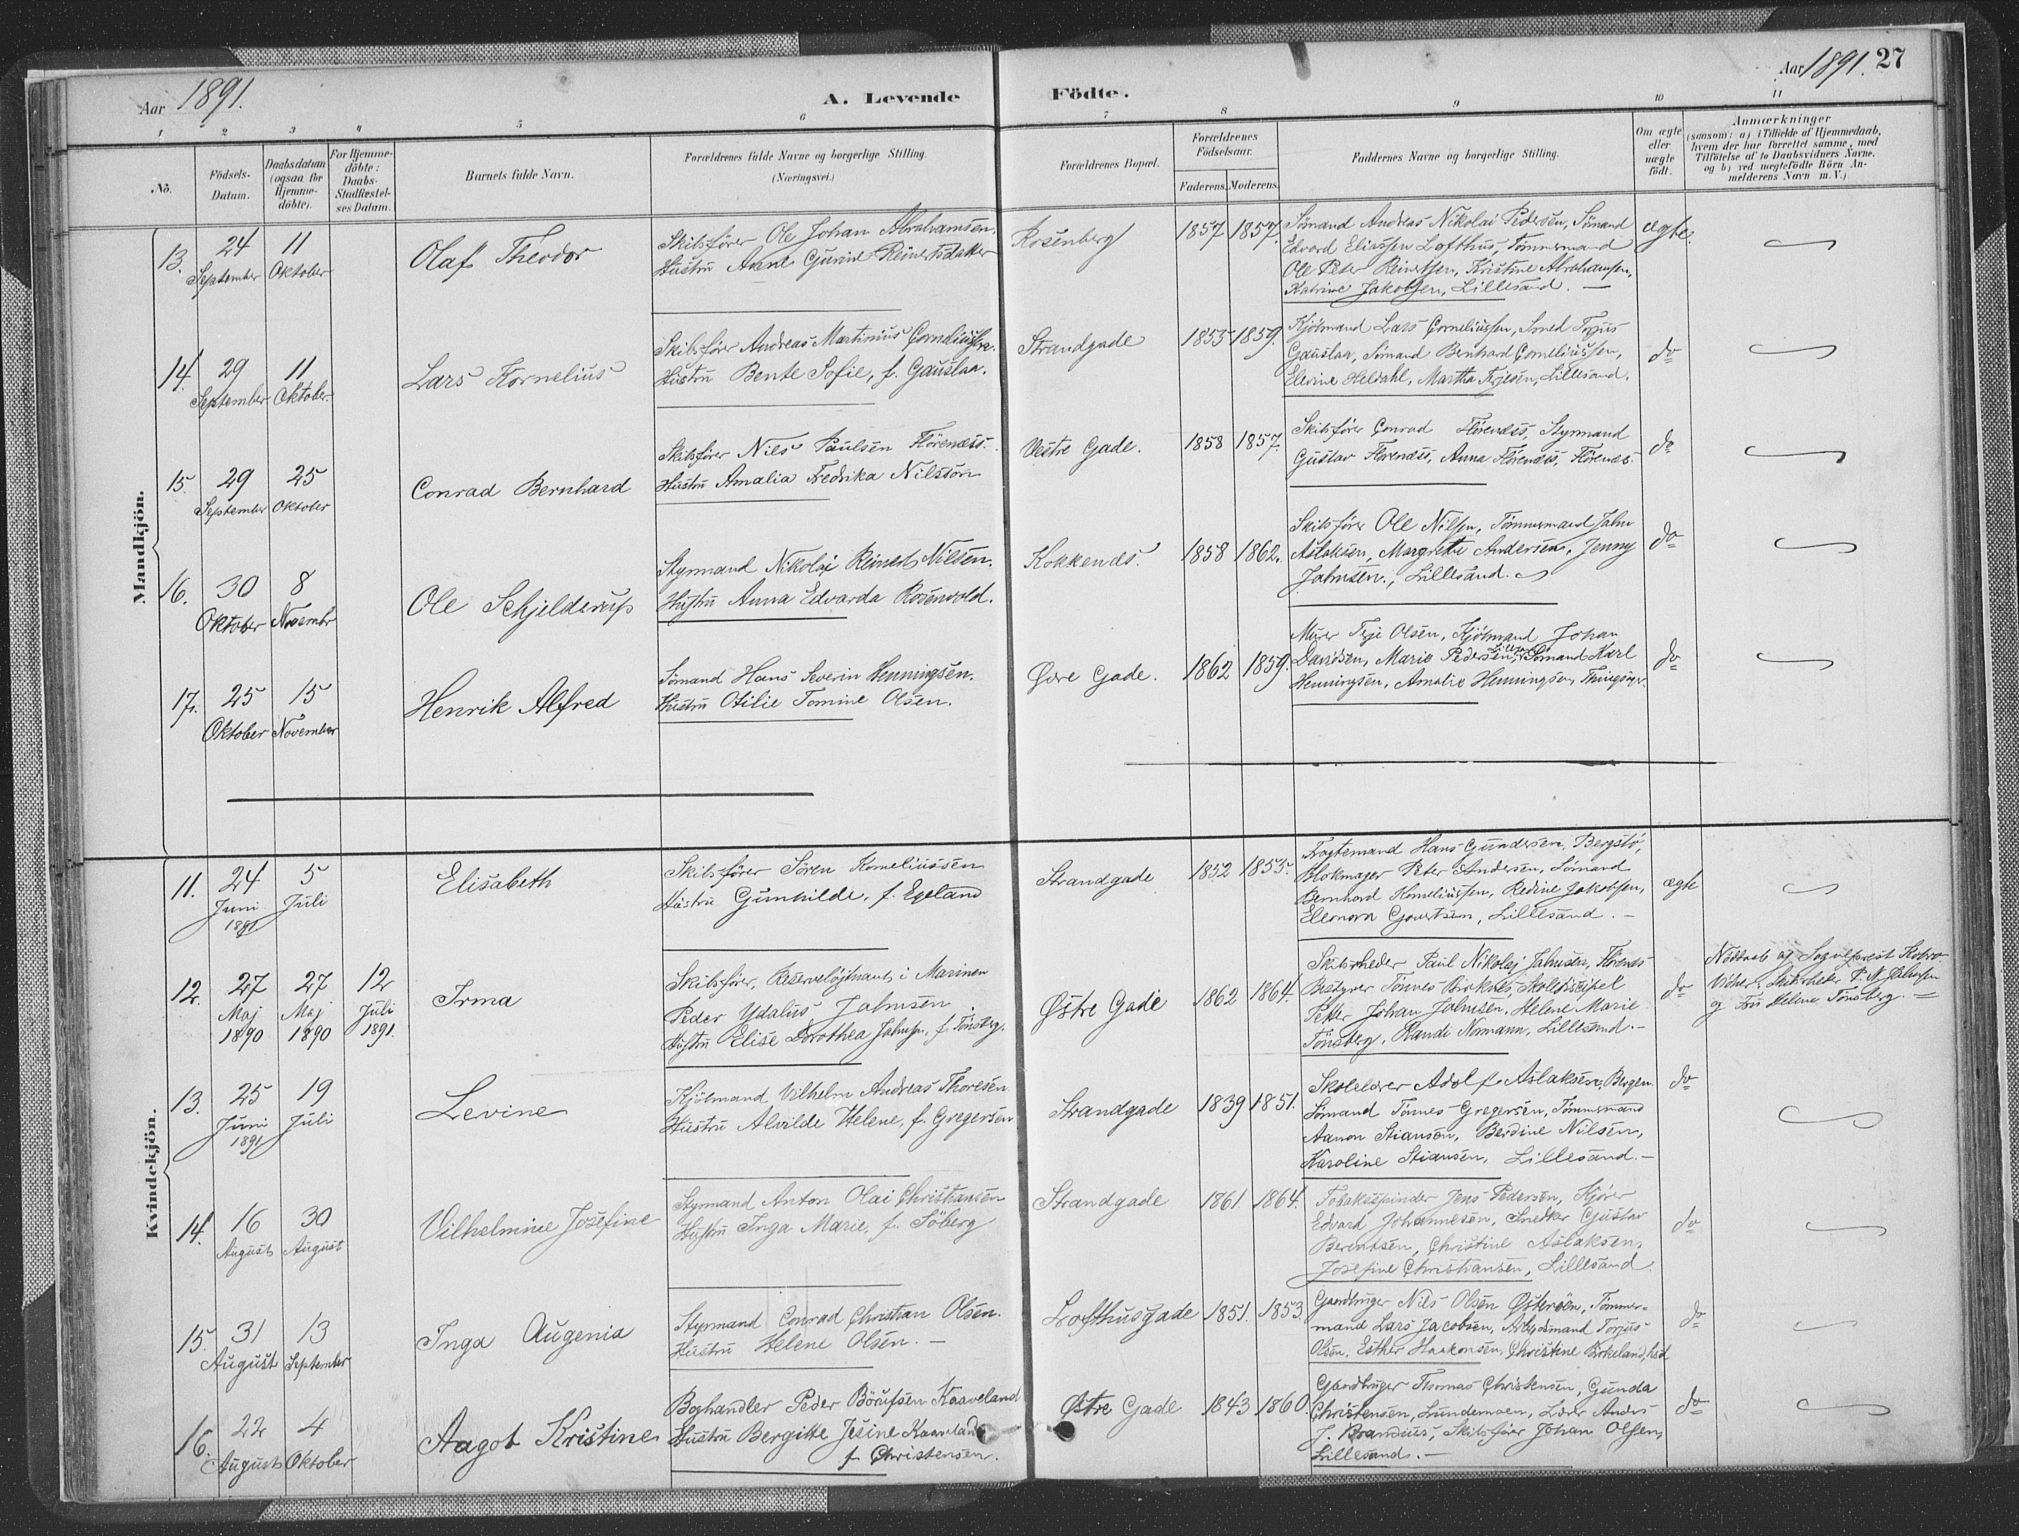 Aar 1891.
A. Levende Födte.
Aar 1891. 27
1 2 3 4 5 6 7 8 9 10 11
No.
Födsels-
Datum.
Daabsdatum
(ogsaa for
Hjemme-
döbte).
For Hjemme-
döbte:
Daabs-
Stadfæstel-
ses Datum.
Barnets fulde Navn.
Forældrenes fulde Navne og borgerlige Stilling.
(Næringsvei.)
Forældrenes Bopæl.
Forældrenes
Födselsaar.
Faderens. Moderens.
Faddernes Navne og borgerlige Stilling.
Om ægte
eller
uægte
födt.
Anmærkninger
(saasom: a) i Tilfælde af Hjemmedaab,
hvem der har forrettet samme, med
Tilföielse af to Daabsvidners Navne,
og b) ved uægtefödte Börn An-
melderens Navn m. V.)
Mandkjön.
13. 24 September 11 Oktober
Olaf Theodor
Skibsfører Ole Johan Abrahamsen.
Hustru Anne Gurine Reinertsdatter
Rosenberg 1857 1857.
Sømand Andreas Nikolai Pedersen, Sömand
Edvard Eliassen Lofthus, Tömmermand
Ole Peter Reinertsen, Kristine Abrahamsen,
Katrine Jakobsen, Lillesand. —
ægte.
14. 29 September 11 Oktober.
Lars Kornelius
Skibsfører Andreas Martinius Corneliussen.
Hustru Bente Sofie, f. Gauslaa.
Strandgade 1855 1859.
Kjöbmand Lars Corneliussen, Smed Terjus
Gauslaa, Sömand Bernhard Corneliussen,
Elevine Heldahl, Martha Terjesen, Lillesand.
do
15. 29 September 25 Oktober
Conrad Bernhard
Skibsfører Nils Paulsen Flörenæss.
Hustru Amalia Fredrika Nilsson
Vestre Gade. 1858 1857.
Skibsfører Conrad Flörenæss, Styrmand
Gustav Florenæss, Anna Flörenæss, Flörenæs.
do
16. 30 Oktober 8 Novembr
Ole Schjelderup
Styrmand Nikolai Reinert Nilsen.
Hustru Anna Edvarda Rosenvold.
Kokkenæs. 1858 1862.
Skibsfører Ole Nilsen, Tömmermand Jahn
Aslaksen, Margrethe Andersen, Jenny
Jahnsen., Lillesand.
do
17. 25 Oktober 15 November
Henrik Alfred
Sömand Hans Severin Henningsen.
Hustru Otilie Tomine Olsen.
Øvre Gade. 1862 1859.
Murer Terje Olsen, Kjöbmand Johan
Davidsen, Marie Pedersen, Sömand Karl
Henningsen, Amalie Henningsen,
do
Kvindekjön.
11. 24 Juni 1891 5 Juli
Elisabeth
Skibsfører Sören Korneliussen
Hustru Gunhilde, f. Egeland
Strandgade 1852 1855.
Fragtemand Hans Gundersen, Bergstö,
Blokmager Peter Andersen, Sömand
Bernhard Korneliussen, Redine Jakobsen,
Eleonora Lillesand. —
ægte
12. 27 Maj 1890 27 Maj 1890 12 Juli 1891.
Irma
Skibsfører, Reserveløjtnant i Marinen
Peder Ydalius Jahnsen
Hustru Elise Dorothea Jahnsen, f. Tönsberg.
Østre Gade 1862 1864.
Skibsrheder Paul Nikolaj Jahnsen, Flörenæs
Bestyrer Tönnes Skoledisipel
Petter Johan Jahnsen, Helene Marie
Tönsberg, Randi Normann, Lillesand. —
do
Nöddaab af
Vidner: Skibsrheder P. N. Jahnsen
og Fru Helene Tönsberg. —
13. 25 Juni 1891 19 Juli
Levine
Kjöbmand Vilhelm Andreas Thoresen
Hustru Alvilde Helene, f. Gregersen
Strandgade 1839 1851.
Skolelærer Adolf Aslaksen, Bergen.
Sömand Tönnes Gregersen, Tömmermand
Aanon Stiansen, Berdine Nilsen,
Karoline Stiansen, Lillesand. —
do
14. 16 August 30 August
Vilhelmine Josefine
Styrmand Anton Olai Christiansen
Hustru Inga Marie, f. Söberg
Strandgade 1861. 1864.
Tobakspinder Jens Pedersen, Kjörer
Edvard Johannesen, Snedker Gustav
Berentsen, Christine Aslaksen,
Josefine Christiansen, Lillesand.
do
15. 31 August 13 September
Inga Augenia
Styrmand Conrad Christian Olsen.
Hustru Helene Olsen. —
Lofthusgade 1851. 1853.
Gaardbruger Nils Olsen Østeröen, Tömmer-
mand Lars Jacobsen, Arbejdsmand Torjus
Olsen, Esther Haakonsen, Christine Birkeland,
do
16. 22 August 4 Oktober
Aagot Kristine
Boghandler Peder Börufsen Kaaveland
Hustru Bergitte Jesine Kaaveland
f. Christensen.
Østre Gade 1843 1860.
Gaardbruger Thomas Christensen, Gunda
Christensen, Lundemoen, Lærer Anders
J. Brandsius, Skibsfører Johan Olsen,
Lillesand. —
do